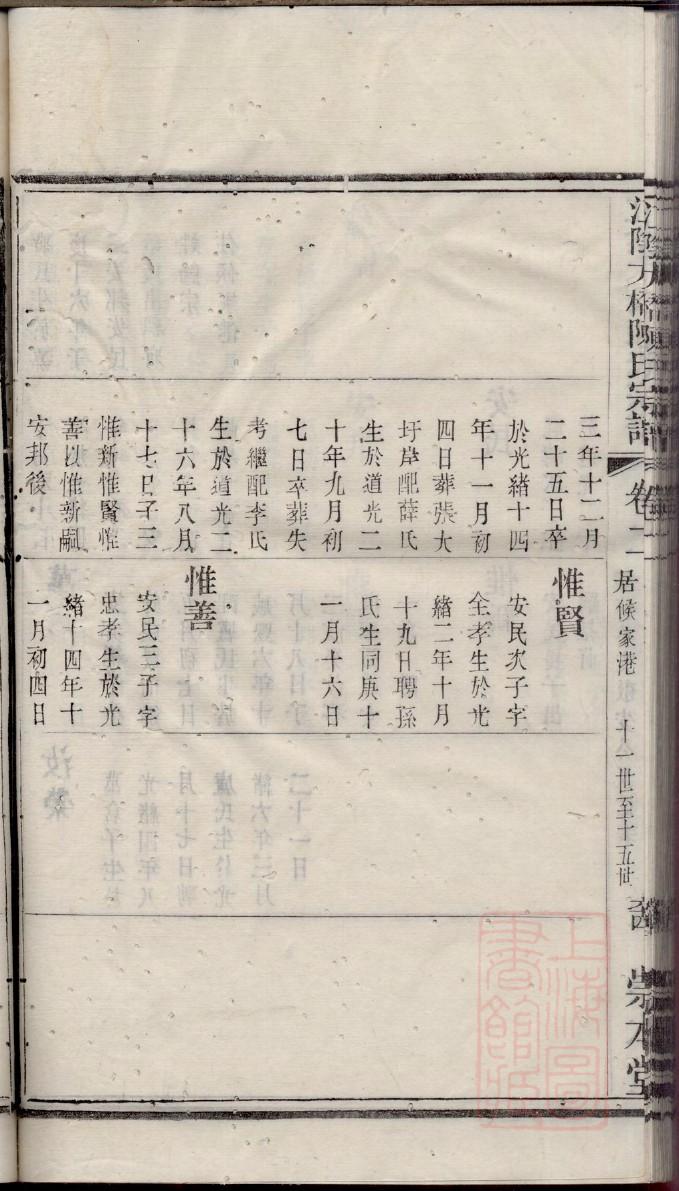 江陰大橋陳氏宗譜
卷二
居候家港 十一世至十五世
崇本堂
三年十二月
二十五日卒
於光緒十四
年十一月初
四日葬張大
圩岸配薛氏
生於道光二
十年九月初
七日卒葬失
考繼配李氏
生於道光二
十六年八月
十七日子三
惟新惟賢惟
善以惟新嗣
安邦後
惟賢
安民次子字
全孝生於光
緒二年十月
十九日聘孫
氏生同庚十
一月十六日
惟善
安民三子字
忠孝生於光
緒十四年十
一月初四日
上海圖
書館藏